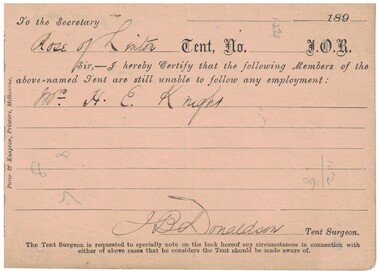 To the Secretary 189
Rose of Linton Tent, No. I.O.R.
Sir,—I hereby Certify that the following Members of the
above-named Tent are still unable to follow any employment:
Mrs H. E. Knight
J B Donaldson Tent Surgeon.
The Tent Surgeon is requested to specially note on the back hereof any circumstances in connection with
either of above cases that he considers the Tent should be made aware of.
Peter & Knapton, Printers, Melbourne.